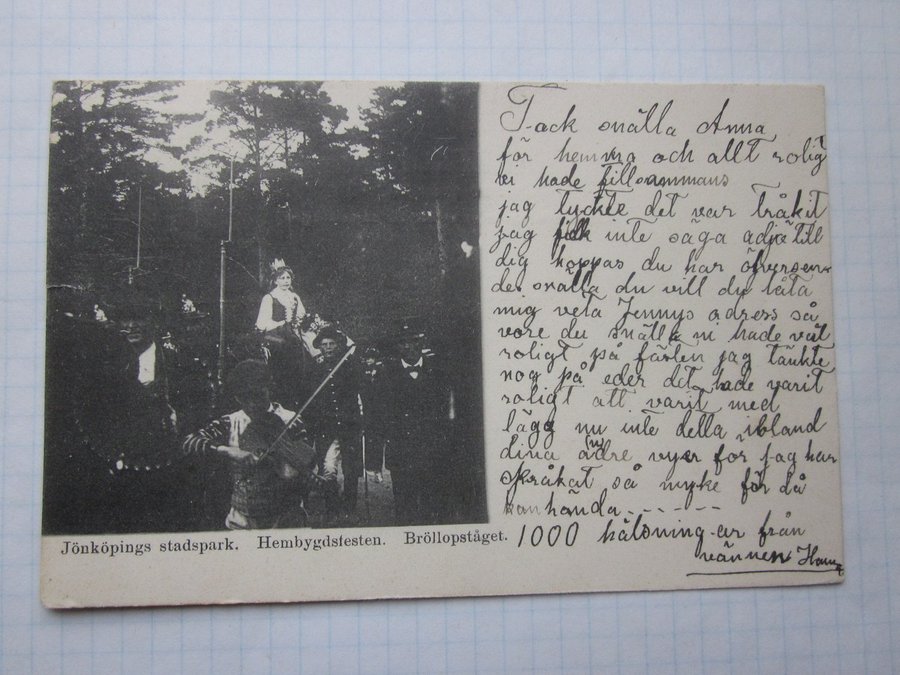 Tack snälla Anna
för hemma och allt rolig
vi hade tillsammans
jag tyckte det var tråkit
jag fick inte säga adjä till
dig hoppas du har
de snälla du vill du låta
mig veta Jennys adress så
vore du snälla ni hade väl
roligt på färten jag tänkte
nog på eder det hade varit
roligt att varit med
lägg nu inte detta ibland
dina vyer för jag har
så myke för då
kanhända - - - - - -
1000 hälsning-ar från
vännen
Jönköpings stadspark. Hembygdsfesten. Bröllopståget.